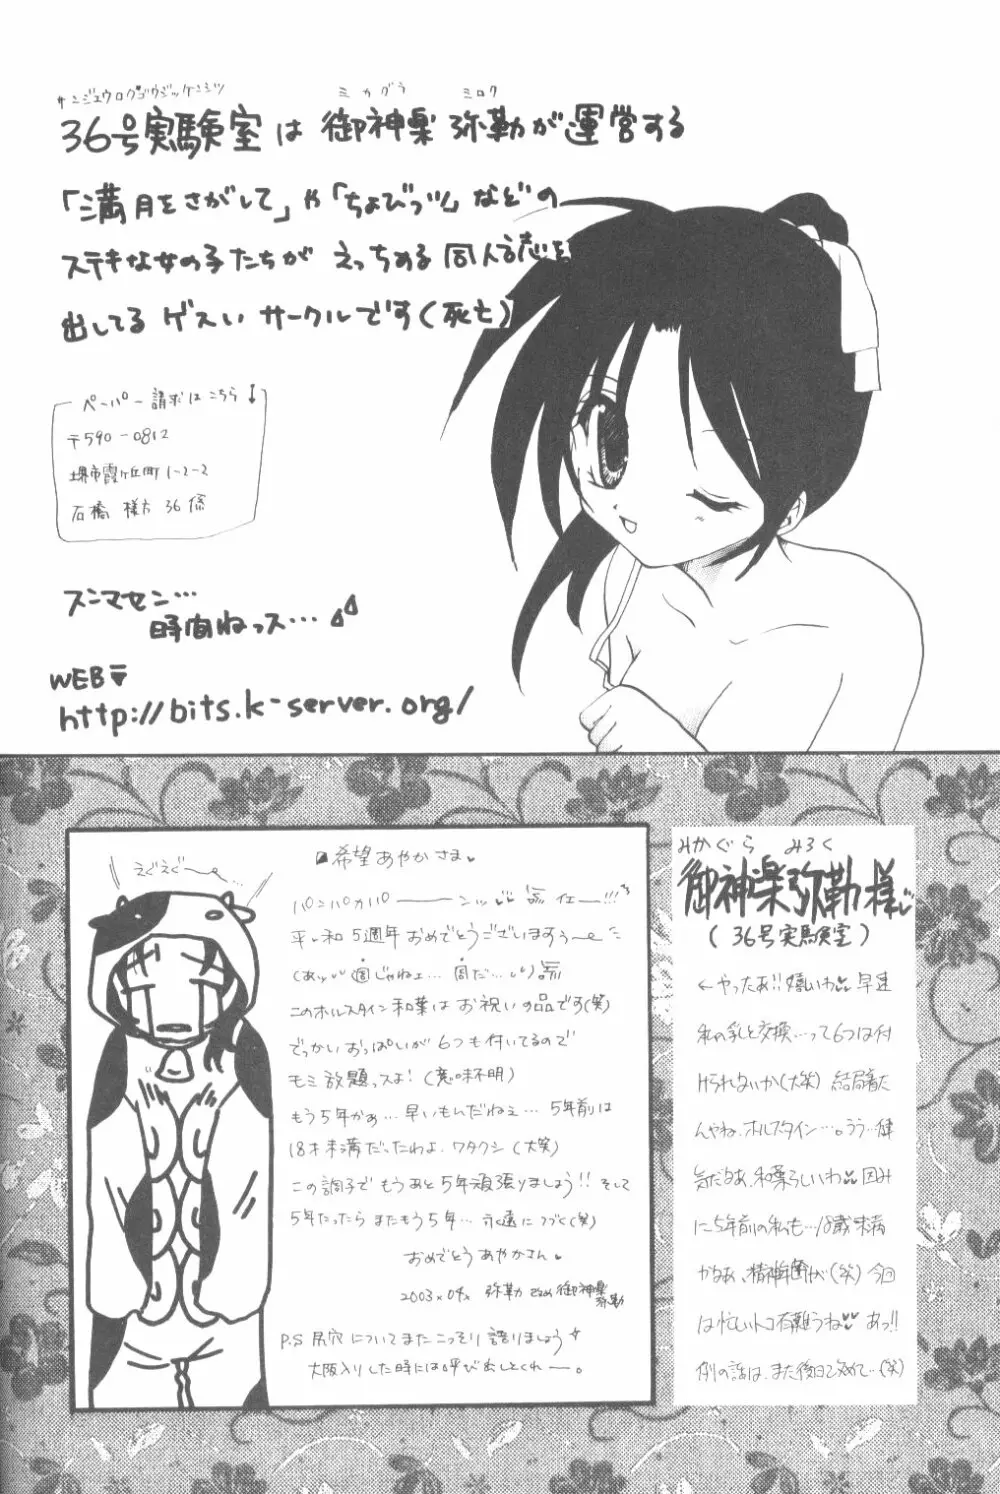 サンジュウロクゴウジッケンシツ ミカグラ ミロク
36号実験室は 御神楽 弥勒が運営する
「満月をさがして」や「ちょびっツ」などの
ステキな女の子たちが えっちめる 同人誌を
出してる ゲスい サークルです(死亡)
ペーパー請求はこちら↓
〒590-0812
堺市霞ヶ丘町1-2-2
石橋 様方 36係
スンマセン…
時間ねっス…
WEB
http://bits.k-server.org/
えぐえぐ〜…
希望あやかさま
パンパカパーーーンッ
平和5週年おめでとうございますぅ〜
(あッ 週じゃねェ… 周だ…
このホルスタイン和葉はお祝いの品です(笑)
でっかいおっぱいが6つも付いてるので
モミ放題っスよ!(意味不明)
もう5年かぁ…早いもんだねェ…5年前は
18才未満だったわよ、ワタクシ(大笑)
この調子でもうあと5年頑張りましょう!!そして
5年たったらまたもう5年…永遠につづく(笑)
おめでとうあやかさん
2003×04× 弥勒 改め 御神楽弥勒
P.S 尻穴についてまたこっそり語りましょう
大阪入りした時には呼び出しとくれー。
みかぐら みろく
御神楽弥勒様
(36号実験室)
←やったあ!!嬉しいわ 早速
私の乳と交換…って6つは付
けられないか(大笑)結局着た
んやね、ホルスタイン…。うう…健
気だなあ、和葉らしいわ 因み
に5年前の私も…18歳未満
かなあ、精神年齢が(笑)今回
は忙しいトコ有難うね あっ!!
例の話は、また後日改めて…(笑)